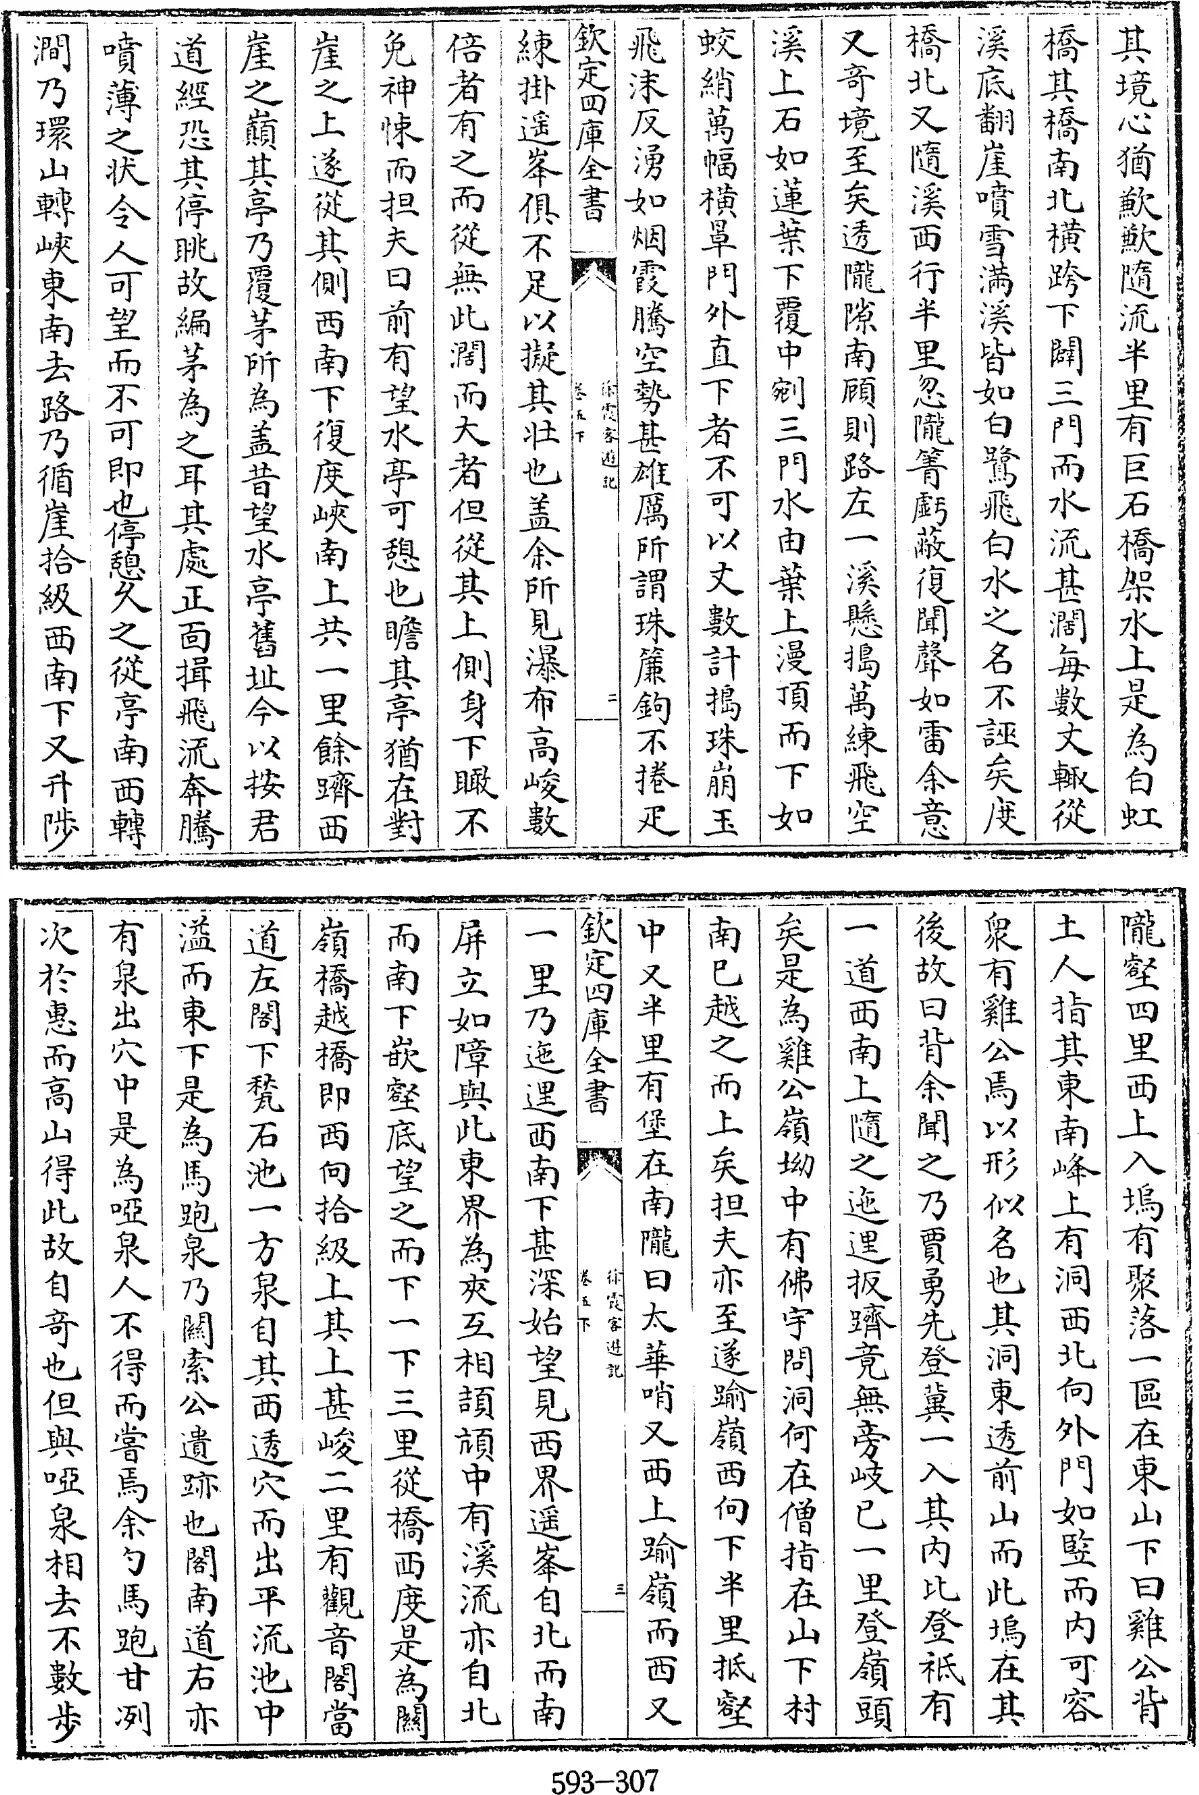 其境心猶歉歉隨流半里有巨石橋架水上是為白虹
橋其橋南北橫跨下闢三門而水流甚濶每數丈輙從
溪底翻崖噴雪滿溪皆如白鷺飛白水之名不誣矣度
橋北又隨溪西行半里忽隴箐虧蔽復聞聲如雷余意
又奇境至矣透隴隙南顧則路左一溪懸搗萬練飛空
溪上石如蓮葉下覆中剜三門水由葉上漫頂而下如
蛟綃萬幅橫罩門外直下者不可以丈數計搗珠崩玉
飛沫反湧如烟霞騰空勢甚雄厲所謂珠簾鉤不捲疋
欽定四庫全書
徐霞客遊記
卷五下
二
練掛遥峯俱不足以擬其壯也蓋余所見瀑布高峻數
倍者有之而從無此濶而大者但從其上側身下瞰不
免神悚而担夫曰前有望水亭可憩也瞻其亭猶在對
崖之上遂從其側西南下復度峽南上共一里餘躋西
崖之巔其亭乃覆茅所為蓋昔望水亭舊址今以按君
道經恐其停眺故編茅為之耳其處正面揖飛流奔騰
噴薄之狀令人可望而不可即也停憩久之從亭南西轉
澗乃環山轉峽東南去路乃循崖拾級西南下又升陟
隴壑四里西上入塢有聚落一區在東山下曰雞公背
土人指其東南峰上有洞西北向外門如竪而内可容
衆有雞公焉以形似名也其洞東透前山而此塢在其
後故曰背余聞之乃賈勇先登冀一入其内比登袛有
一道西南上隨之迤邐扳躋竟無旁岐已一里登嶺頭
矣是為雞公嶺坳中有佛宇問洞何在僧指在山下村
南已越之而上矣担夫亦至遂踰嶺西向下半里抵壑
中又半里有堡在南隴曰太華哨又西上踰嶺而西又
欽定四庫全書
徐霞客遊記
卷五下
三
一里乃迤邐西南下甚深始望見西界遥峯自北而南
屏立如障與此東界為夾互相頡頏中有溪流亦自北
而南下嵌壑底望之而下一下三里從橋西度是為關
嶺橋越橋即西向拾級上其上甚峻二里有觀音閣當
道左閣下甃石池一方泉自其西透穴而出平流池中
溢而東下是為馬跑泉乃關索公遺跡也閣南道右亦
有泉出穴中是為啞泉人不得而嘗焉余勺馬跑甘冽
次於惠而高山得此故自奇也但與啞泉相去不數步
593-307